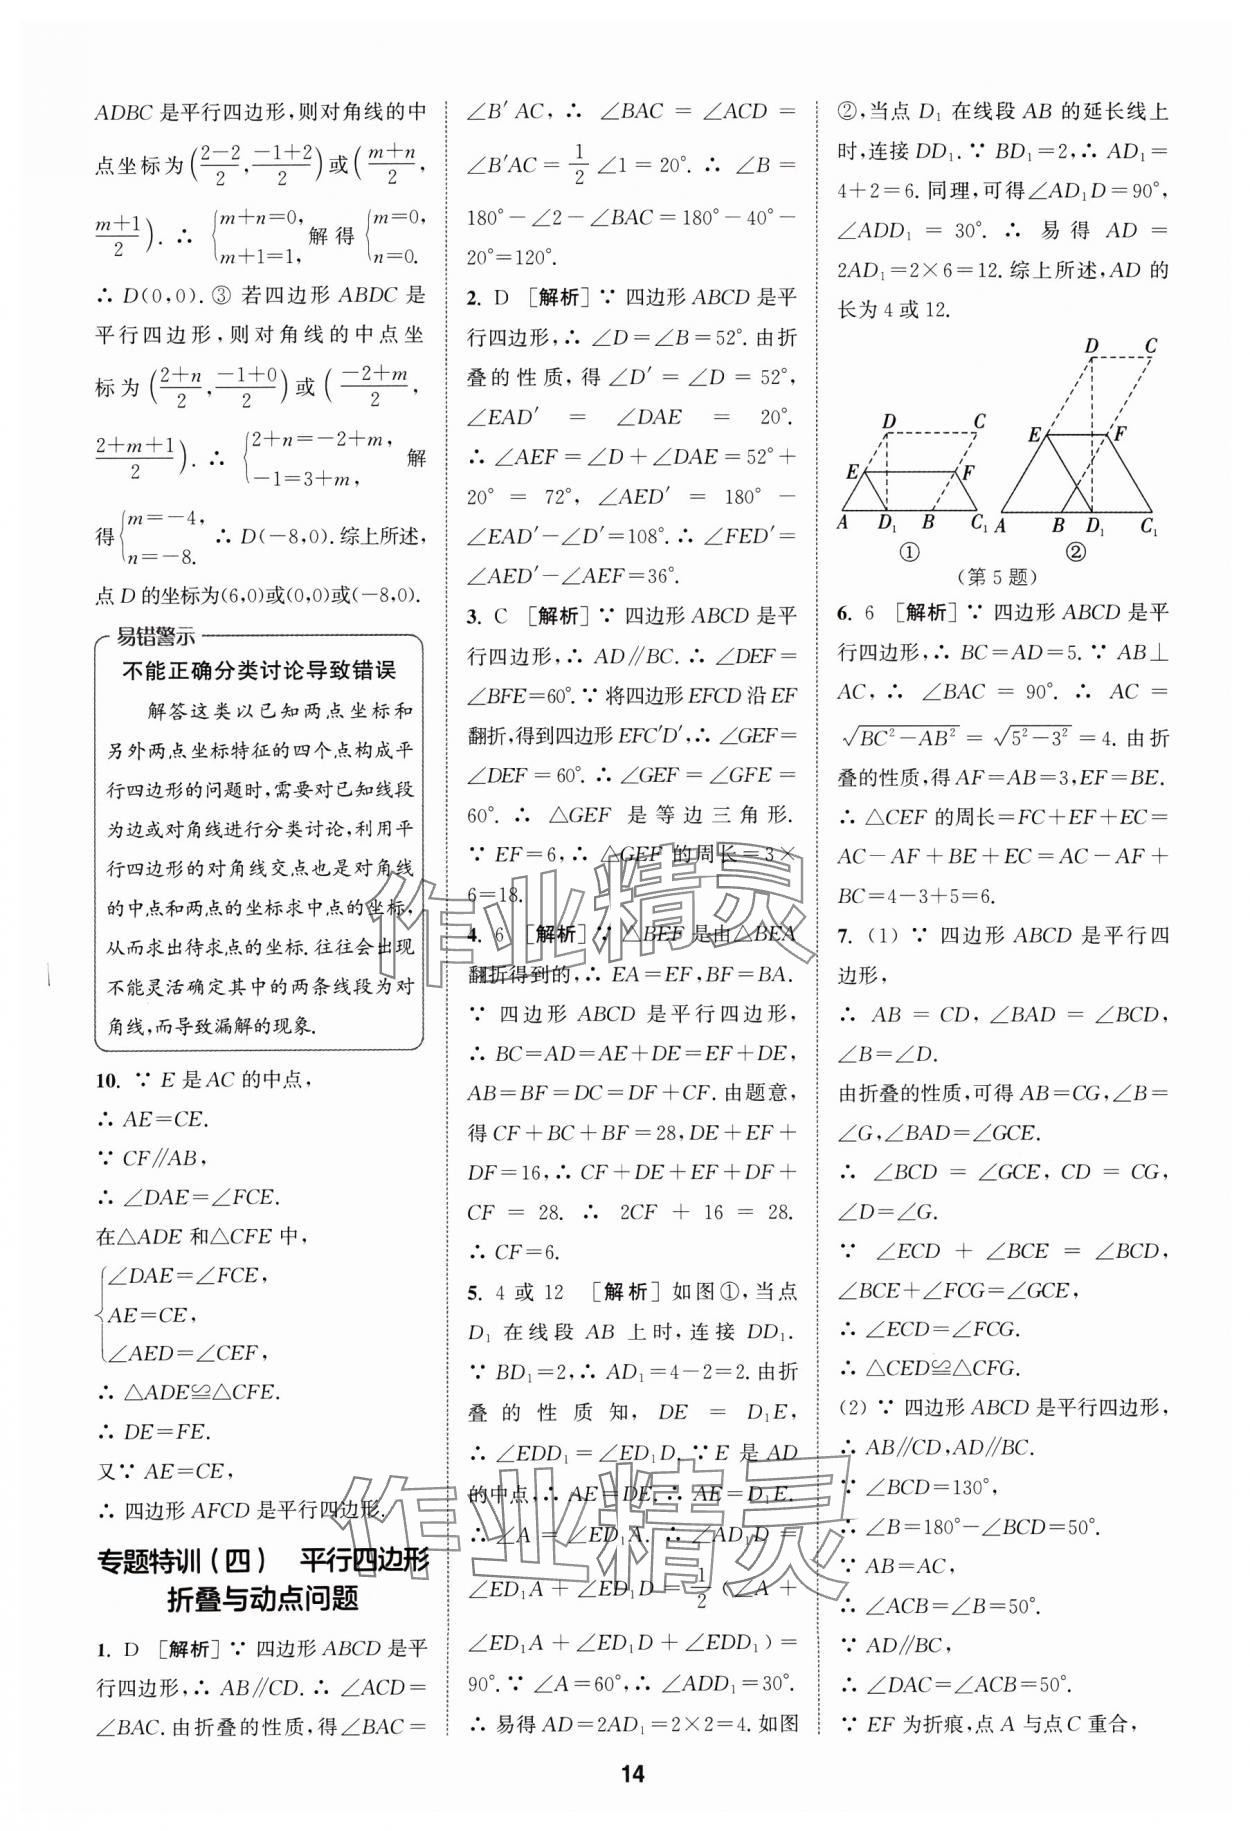 ADBC 是平行四边形,则对角线的中
点坐标为(\frac{2-2}{2},\frac{-1+2}{2})或(\frac{m+n}{2},
\frac{m+1}{2}). ∴ {m+n=0, m+1=1, 解得 {m=0, n=0.
∴ D(0,0). ③ 若四边形 ABDC 是
平行四边形,则对角线的中点坐
标为(\frac{2+n}{2},\frac{-1+0}{2})或(\frac{-2+m}{2},
\frac{2+m+1}{2}). ∴ {2+n=-2+m, -1=3+m, 解
得{m=-4, n=-8. ∴ D(-8,0). 综上所述,
点 D 的坐标为(6,0)或(0,0)或(-8,0).
易错警示
不能正确分类讨论导致错误
解答这类以已知两点坐标和
另外两点坐标特征的四个点构成平
行四边形的问题时,需要对已知线段
为边或对角线进行分类讨论,利用平
行四边形的对角线交点也是对角线
的中点和两点的坐标求中点的坐标,
从而求出待求点的坐标. 往往会出现
不能灵活确定其中的两条线段为对
角线,而导致漏解的现象.
10. ∵ E 是 AC 的中点,
∴ AE=CE.
∵ CF∥AB,
∴ ∠DAE=∠FCE.
在△ADE 和△CFE 中,
{∠DAE=∠FCE,
AE=CE,
∠AED=∠CEF,
∴ △ADE≌△CFE.
∴ DE=FE.
又∵ AE=CE,
∴ 四边形 AFCD 是平行四边形.
专题特训(四) 平行四边形
折叠与动点问题
1. D [解析]∵ 四边形 ABCD 是平
行四边形,∴ AB∥CD. ∴ ∠ACD=
∠BAC. 由折叠的性质,得∠BAC=
∠B′AC,∴ ∠BAC = ∠ACD =
∠B′AC=\frac{1}{2}∠1=20°. ∴ ∠B=
180°-∠2-∠BAC=180°-40°-
20°=120°.
2. D [解析]∵ 四边形 ABCD 是平
行四边形,∴ ∠D=∠B=52°. 由折
叠的性质,得∠D′=∠D=52°,
∠EAD′ = ∠DAE = 20°.
∴ ∠AEF=∠D+∠DAE=52°+
20° = 72°, ∠AED′ = 180° -
∠EAD′-∠D′=108°. ∴ ∠FED′=
∠AED′-∠AEF=36°.
3. C [解析]∵ 四边形 ABCD 是平
行四边形,∴ AD∥BC. ∴ ∠DEF=
∠BFE=60°. ∵ 将四边形 EFCD 沿 EF
翻折,得到四边形 EFC′D′,∴ ∠GEF=
∠DEF=60°. ∴ ∠GEF=∠GFE=
60°. ∴ △GEF 是等边三角形.
∵ EF=6,∴ △GEF 的周长=3×
6=18.
4. 6 [解析]∵ △BEF 是由△BEA
翻折得到的,∴ EA=EF,BF=BA.
∵ 四边形 ABCD 是平行四边形,
∴ BC=AD=AE+DE=EF+DE,
AB=BF=DC=DF+CF. 由题意,
得 CF+BC+BF=28,DE+EF+
DF=16,∴ CF+DE+EF+DF+
CF = 28. ∴ 2CF + 16 = 28.
∴ CF=6.
5. 4 或 12 [解析]如图①,当点
D₁ 在线段 AB 上时,连接 DD₁.
∵ BD₁=2,∴ AD₁=4-2=2. 由折
叠的性质知,DE = D₁E,
∴ ∠EDD₁=∠ED₁D. ∵ E 是 AD
的中点,∴ AE=DE. ∴ AE=D₁E.
∴ ∠A = ∠ED₁A. ∴ ∠AD₁D =
∠ED₁A + ∠ED₁D = \frac{1}{2}(∠A +
∠ED₁A+∠ED₁D+∠EDD₁)=
90°. ∵ ∠A=60°,∴ ∠ADD₁=30°.
∴ 易得 AD=2AD₁=2×2=4. 如图
②,当点 D₁ 在线段 AB 的延长线上
时,连接 DD₁. ∵ BD₁=2,∴ AD₁=
4+2=6. 同理,可得∠AD₁D=90°,
∠ADD₁ = 30°. ∴ 易得 AD =
2AD₁=2×6=12. 综上所述,AD 的
长为 4 或 12.
D C E F A D₁ B C₁
①
D C E F A B D₁ C₁
②
(第 5 题)
6. 6 [解析]∵ 四边形 ABCD 是平
行四边形,∴ BC=AD=5. ∵ AB⊥
AC,∴ ∠BAC = 90°. ∴ AC =
\sqrt{BC²-AB²} = \sqrt{5²-3²} = 4. 由折
叠的性质,得 AF=AB=3,EF=BE.
∴ △CEF 的周长=FC+EF+EC=
AC-AF+BE+EC=AC-AF+
BC=4-3+5=6.
7. (1) ∵ 四边形 ABCD 是平行四
边形,
∴ AB = CD, ∠BAD = ∠BCD,
∠B=∠D.
由折叠的性质,可得 AB=CG,∠B=
∠G,∠BAD=∠GCE.
∴ ∠BCD = ∠GCE, CD = CG,
∠D=∠G.
∵ ∠ECD + ∠BCE = ∠BCD,
∠BCE+∠FCG=∠GCE,
∴ ∠ECD=∠FCG.
∴ △CED≌△CFG.
(2) ∵ 四边形 ABCD 是平行四边形,
∴ AB∥CD,AD∥BC.
∵ ∠BCD=130°,
∴ ∠B=180°-∠BCD=50°.
∵ AB=AC,
∴ ∠ACB=∠B=50°.
∵ AD∥BC,
∴ ∠DAC=∠ACB=50°.
∵ EF 为折痕,点 A 与点 C 重合,
14
作业精灵
作业精灵